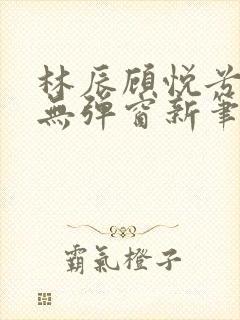 林辰顾悦兮
無彈窗新筆
霸氣橙子